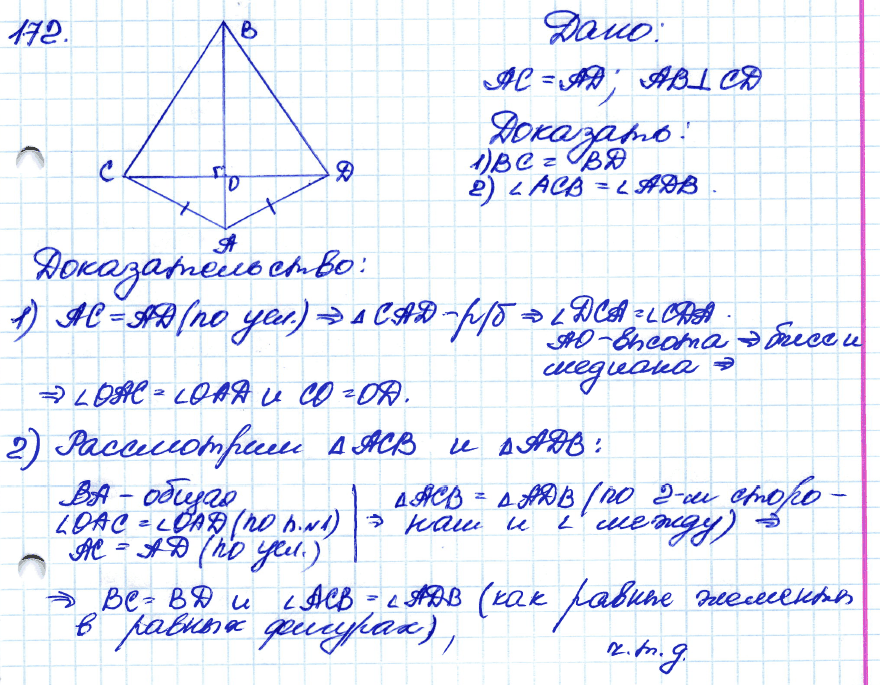 172.
B
C
O
D
A
Дано:
AC = AD; AB⊥CD
Доказать:
1) BC = BD
2) ∠ACB = ∠ADB.
Доказательство:
1) AC = AD (по усл.) ⇒ △CAD - р/б ⇒ ∠DCA = ∠CDA.
AO - высота ⇒ бисс и
медиана ⇒
⇒ ∠OAC = ∠OAD и CO = OD.
2) Рассмотрим △ACB и △ADB:
BA - общая
∠OAC = ∠OAD (по п.№1)
AC = AD (по усл.)
⇒ △ACB = △ADB (по 2-м сторо-
нам и ∠ между) ⇒
⇒ BC = BD и ∠ACB = ∠ADB (как равные элементы
в равных фигурах),
ч.т.д.